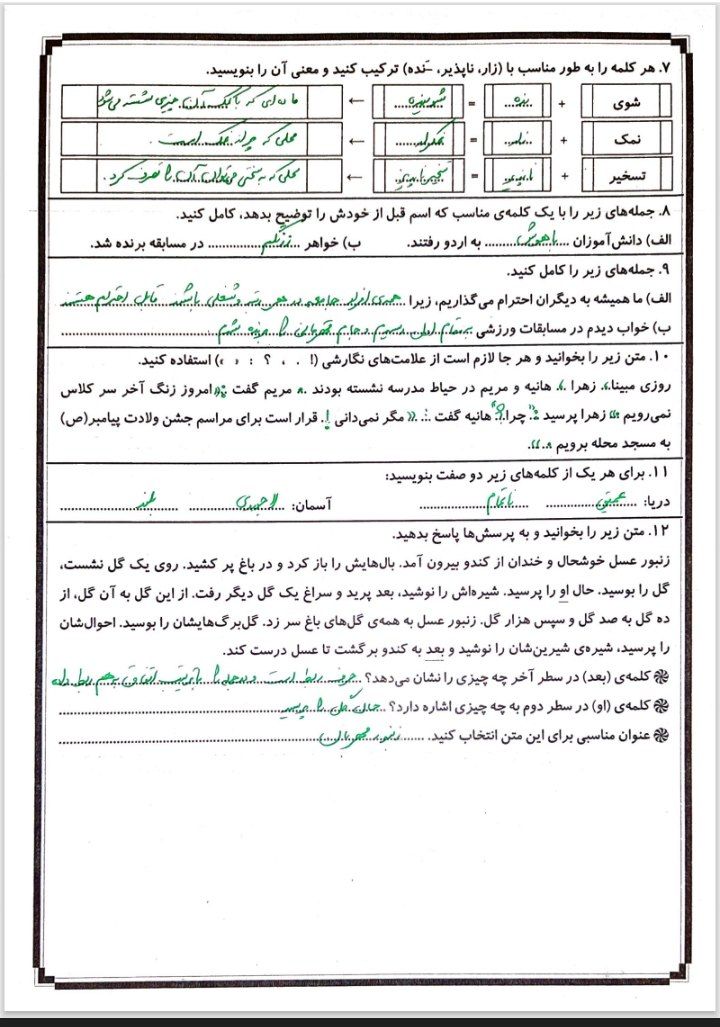 ۷. هر کلمه را به طور مناسب با (زار، ناپذیر، ـَ نده) ترکیب کنید و معنی آن را بنویسید.
شوی + نده = شوینده ← ماده‌ای که با کمک آن چیزی شسته می‌شود
نمک + زار = نمکزار ← محلی که پر از نمک است.
تسخیر + ناپذیر = تسخیر ناپذیر ← محلی که به سختی می‌توان آن را تصرف کرد.
۸. جمله‌های زیر را با یک کلمه‌ی مناسب که اسم قبل از خودش را توضیح بدهد، کامل کنید.
الف) دانش‌آموزان باهوش به اردو رفتند. ب) خواهر بزرگم در مسابقه برنده شد.
۹. جمله‌های زیر را کامل کنید.
الف) ما همیشه به دیگران احترام می‌گذاریم، زیرا همه‌ی افراد جامعه در هر رتبه و شغلی باشند قابل احترام هستند
ب) خواب دیدم در مسابقات ورزشی به مقام اول رسیدم و جام قهرمانی را برنده شدم
۱۰. متن زیر را بخوانید و هر جا لازم است از علامت‌های نگارشی (! . ، ؟ : ؛ « ») استفاده کنید.
روزی مبینا، زهرا، هانیه و مریم در حیاط مدرسه نشسته بودند. مریم گفت: «امروز زنگ آخر سر کلاس
نمی‌رویم» زهرا پرسید: «چرا؟» هانیه گفت: «مگر نمی‌دانی! قرار است برای مراسم جشن ولادت پیامبر(ص)
به مسجد محله برویم.»
۱۱. برای هر یک از کلمه‌های زیر دو صفت بنویسید:
دریا: عمیق ناآرام آسمان: لاجوردی بلند
۱۲. متن زیر را بخوانید و به پرسش‌ها پاسخ بدهید.
زنبور عسل خوشحال و خندان از کندو بیرون آمد. بال‌هایش را باز کرد و در باغ پر کشید. روی یک گل نشست،
گل را بوسید. حال او را پرسید. شیره‌اش را نوشید، بعد پرید و سراغ یک گل دیگر رفت. از این گل به آن گل، از
ده گل به صد گل و سپس هزار گل. زنبور عسل به همه‌ی گل‌های باغ سر زد. گل‌برگ‌هایشان را بوسید. احوال‌شان
را پرسید، شیره‌ی شیرین‌شان را نوشید و بعد به کندو برگشت تا عسل درست کند.
کلمه‌ی (بعد) در سطر آخر چه چیزی را نشان می‌دهد؟ حرف ربط است و دو جمله را به هم ربط داده
کلمه‌ی (او) در سطر دوم به چه چیزی اشاره دارد؟ حال گل را پرسید
عنوان مناسبی برای این متن انتخاب کنید. زنبور مهربان